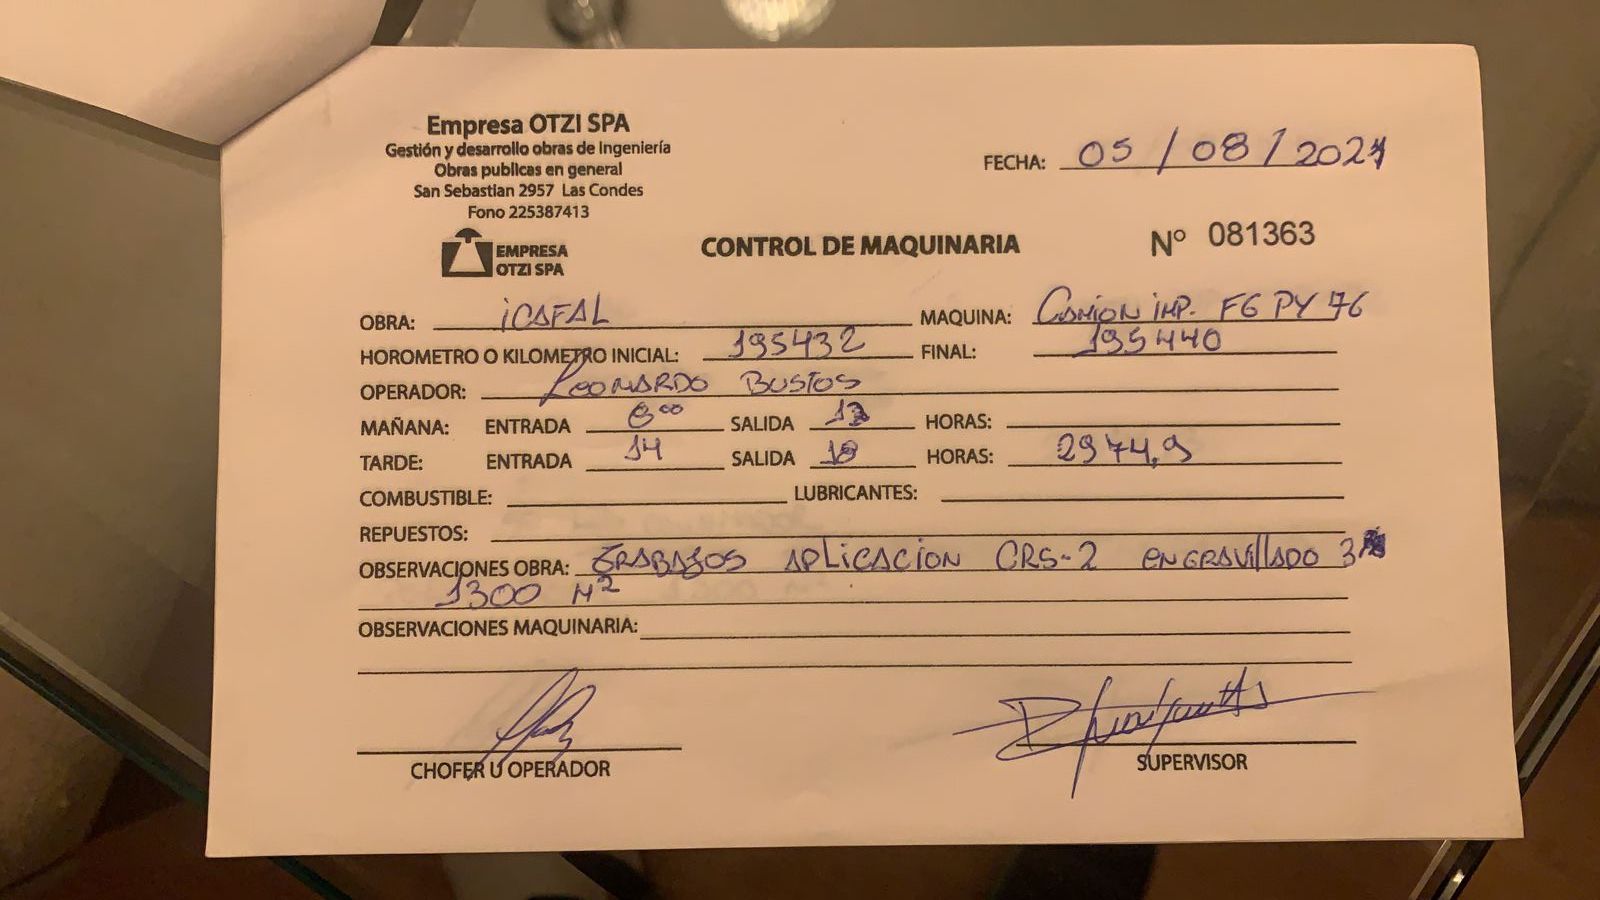 Empresa OTZI SPA
Gestión y desarrollo obras de Ingeniería
Obras publicas en general
San Sebastian 2957 Las Condes
Fono 225387413
EMPRESA
OTZI SPA
FECHA: 05/08/2021
CONTROL DE MAQUINARIA
Nº 081363
OBRA: iCAFAL MAQUINA: Camion imp. FG PY 76
HOROMETRO O KILOMETRO INICIAL: 195432 FINAL: 195440
OPERADOR: LEONARDO BUSTOS
MAÑANA: ENTRADA 8⁰⁰ SALIDA 13 HORAS:
TARDE: ENTRADA 14 SALIDA 18 HORAS: 2974,9
COMBUSTIBLE: LUBRICANTES:
REPUESTOS:
OBSERVACIONES OBRA: TRABAJOS APLICACION CRS-2 ENGRAVILLADO 3
1300 M²
OBSERVACIONES MAQUINARIA:
CHOFER U OPERADOR
SUPERVISOR